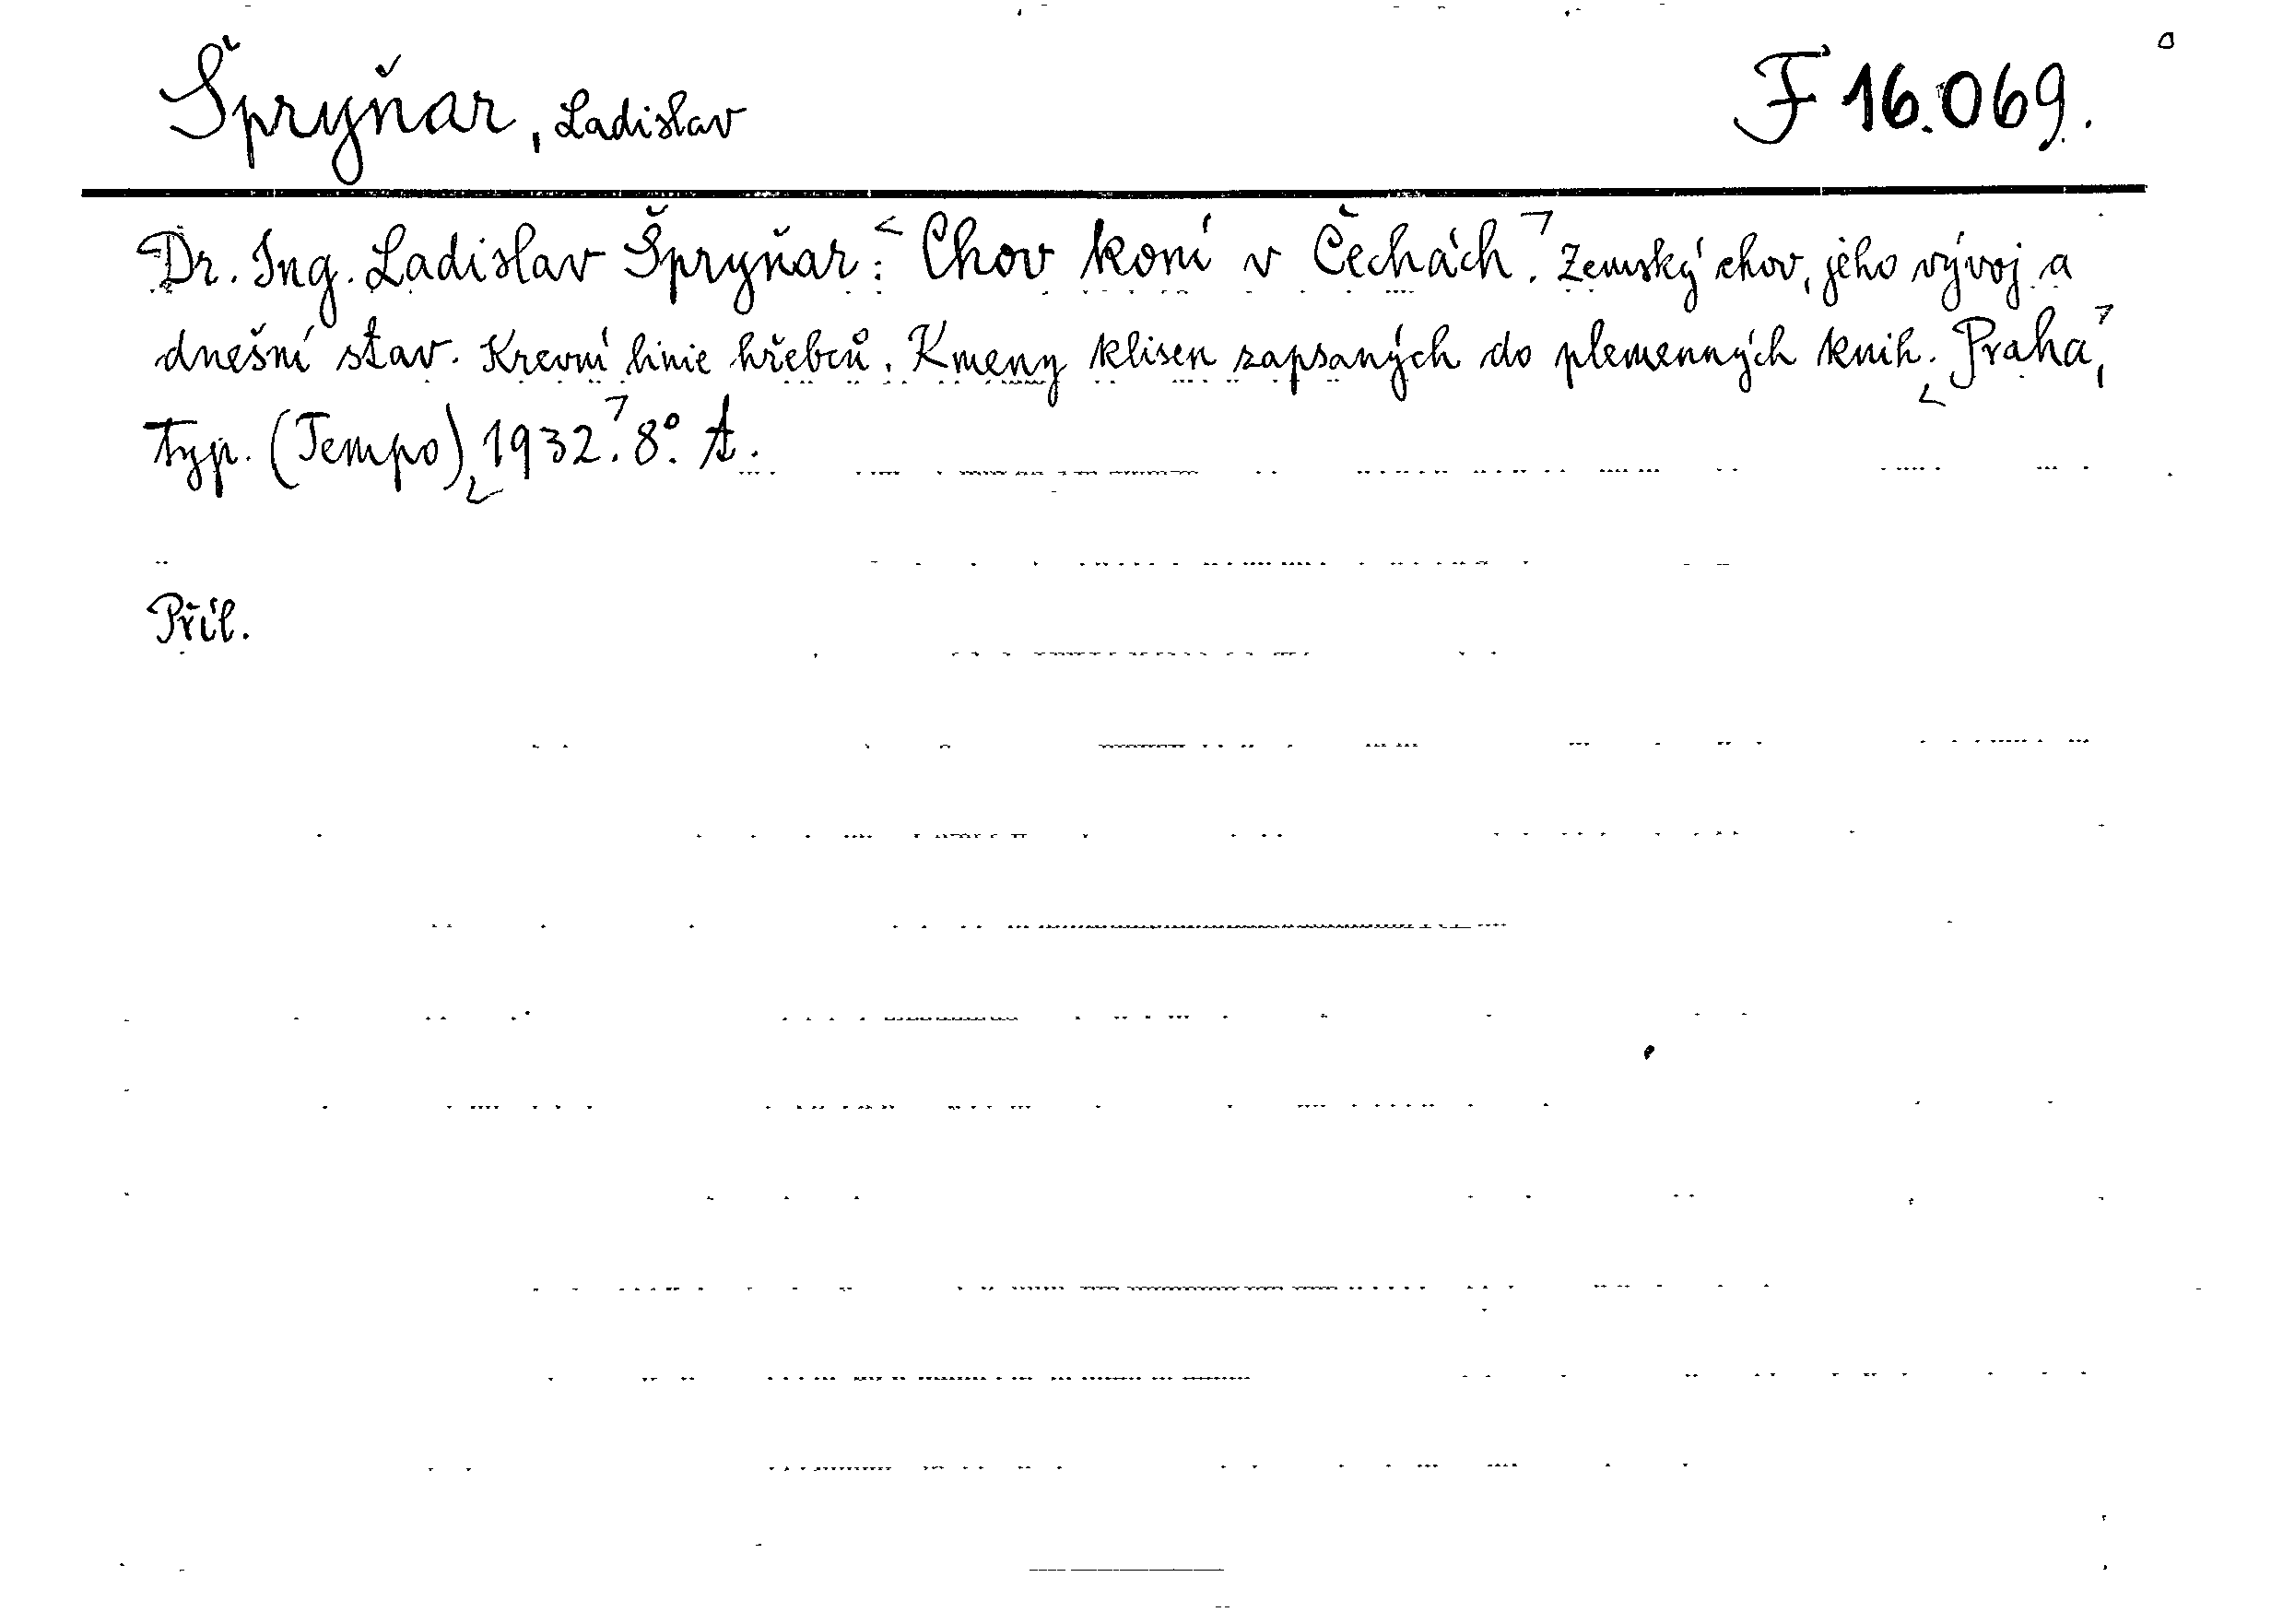 Špryňar, Ladislav
F 16.069.
Dr. Ing. Ladislav Špryňar: Chov koní v Čechách. Zemský chov, jeho vývoj a
dnešní stav. Krevní linie hřebců. Kmeny klisen zapsaných do plemenných knih. Praha,
typ. (Tempo) 1932. 8°. A.
Příl.